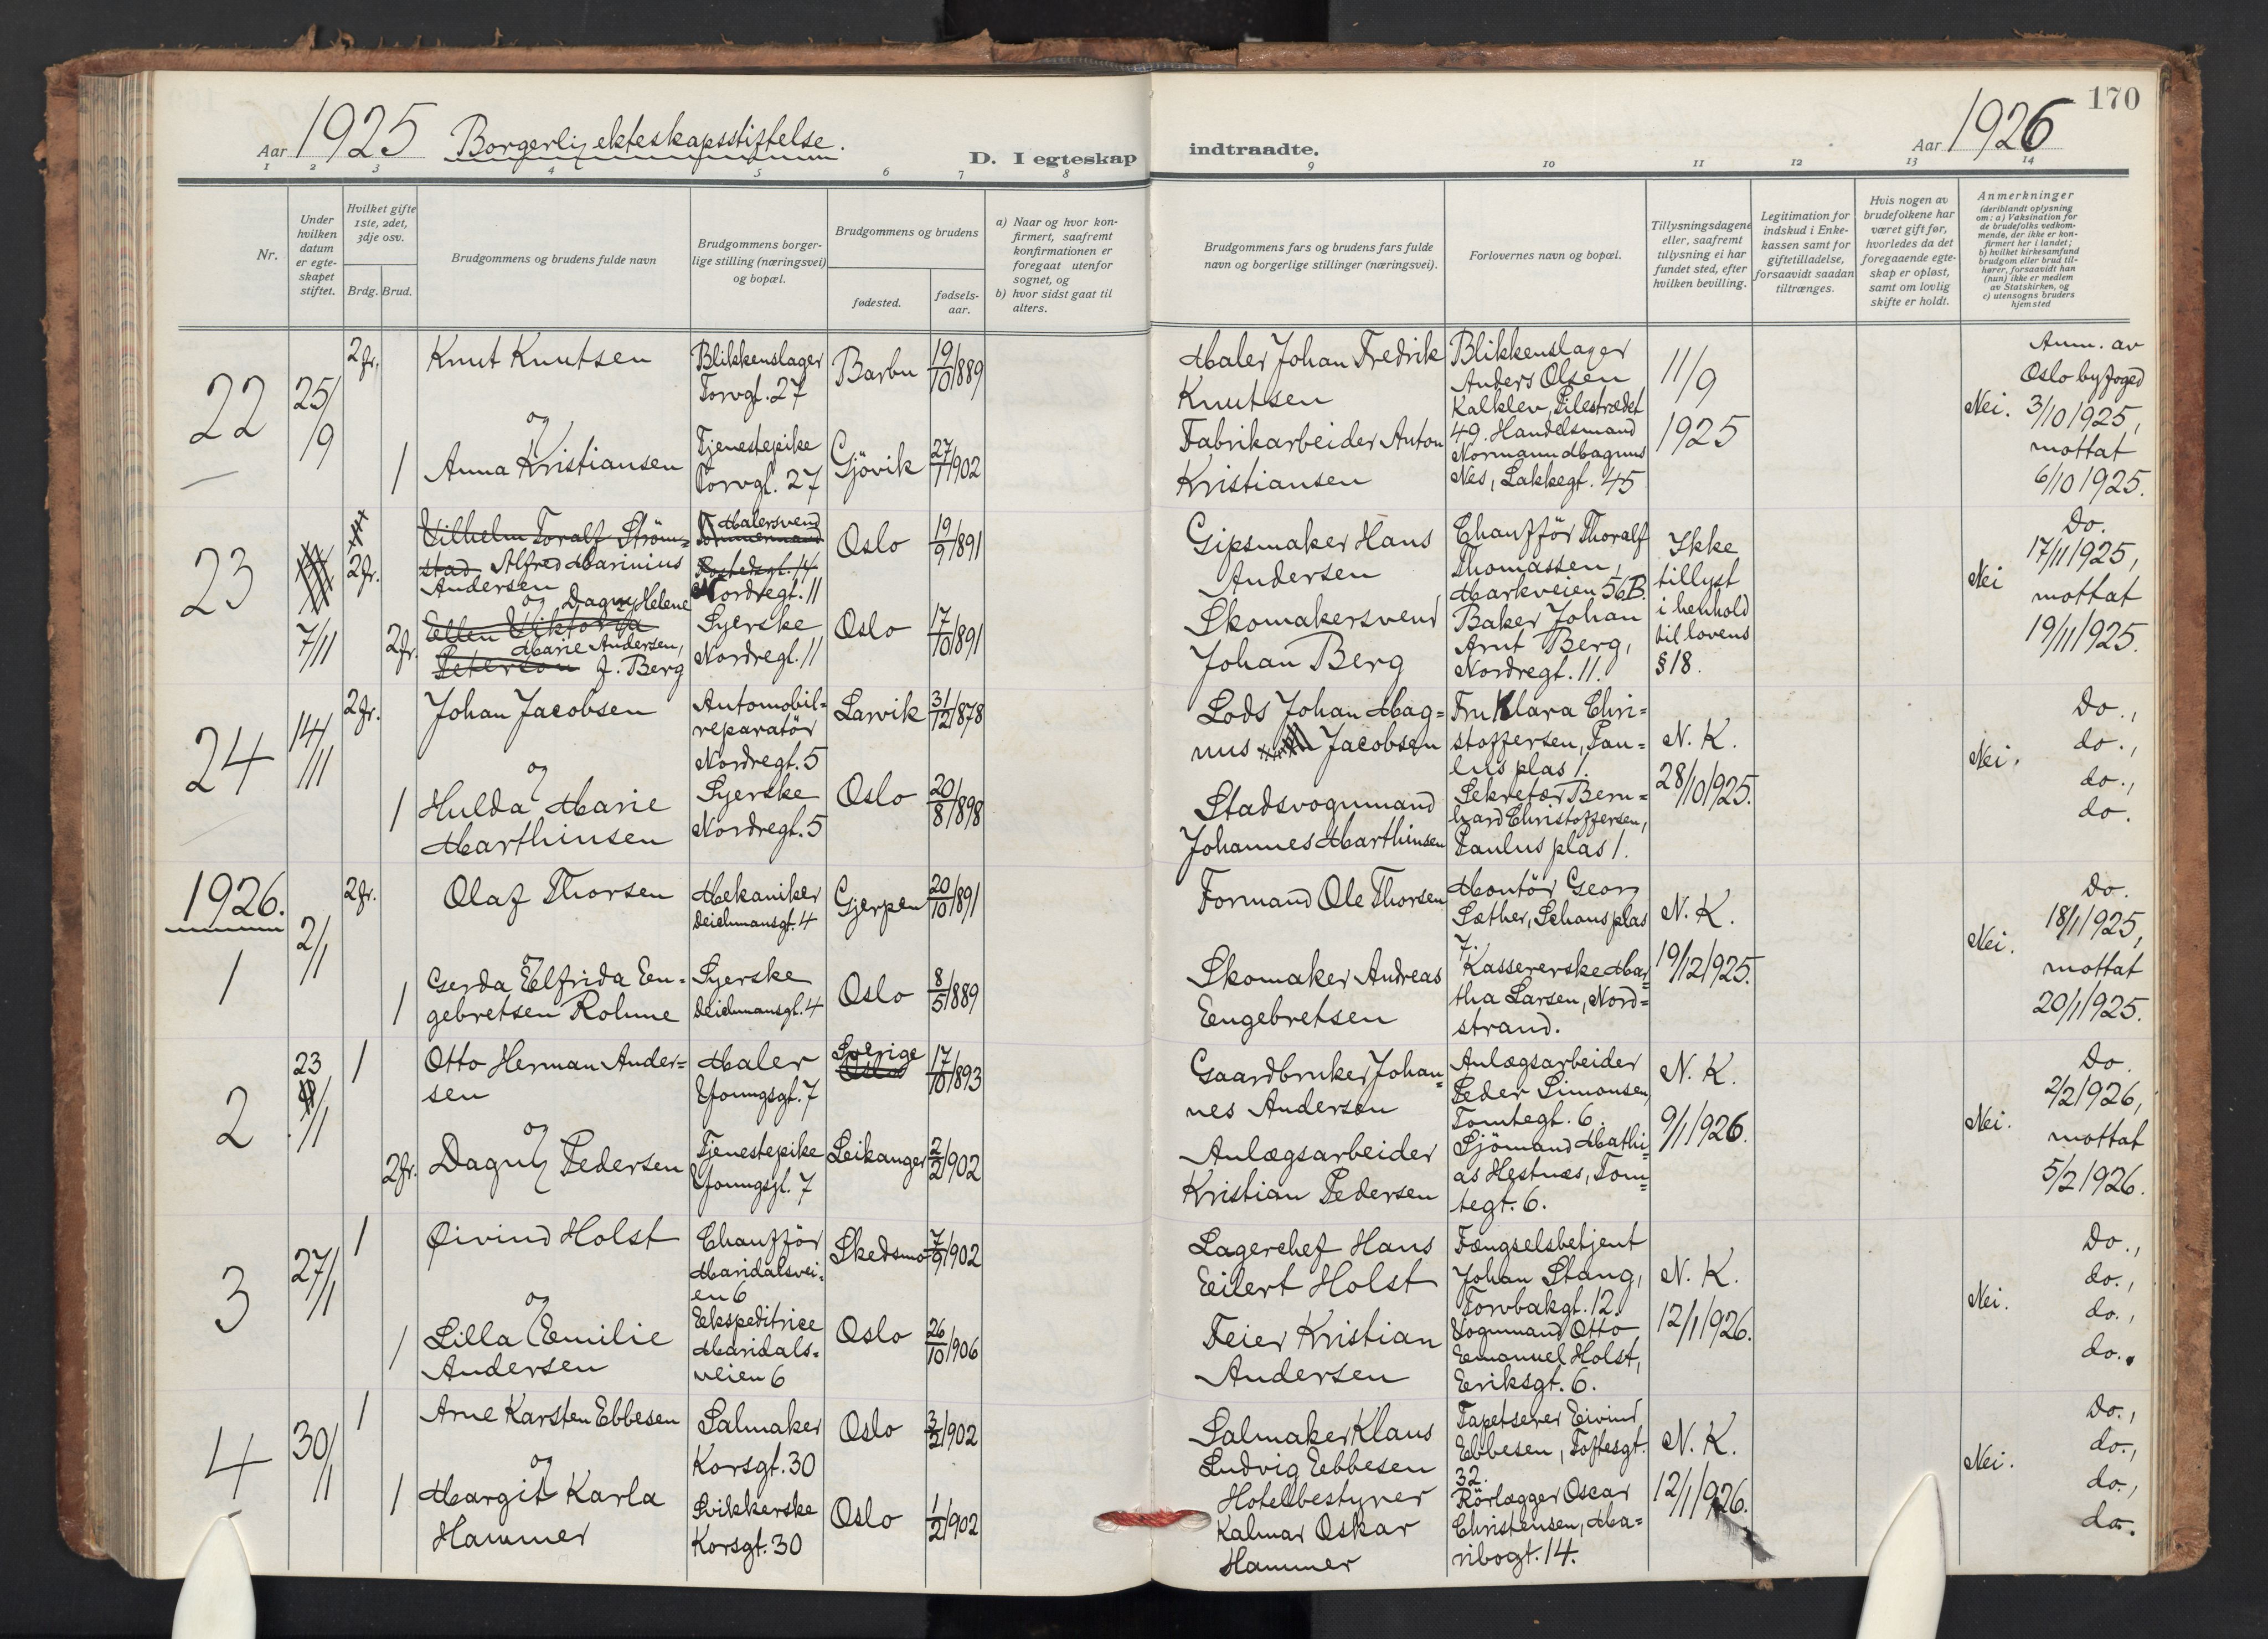 Aar 1925 Borgerlig ekteskapsstiftelse.
D. I egteskap indtraadte.
Aar 1926
170
1 2 3 4 5 6 7 8 9 10 11 12 13 14
Nr.
Under hvilken datum er egte-skapet stiftet.
Hvilket gifte 1ste, 2det, 3dje osv.
Brdg. Brud.
Brudgommens og brudens fulde navn
Brudgommens borger-
lige stilling (næringsvei)
og bopæl.
Brudgommens og brudens
fødested.
fødsels-
aar.
a) Naar og hvor kon-
firmert, saafremt
konfirmationen er
foregaat utenfor
sognet, og
b) hvor sidst gaat til
alters.
Brudgommens fars og brudens fars fulde
navn og borgerlige stillinger (næringsvei).
Forlovernes navn og bopæl.
Tillysningsdagene
eller, saafremt
tillysning ei har
fundet sted, efter
hvilken bevilling.
Legitimation for
indskud i Enke-
kassen samt for
giftetilladelse,
forsaavidt saadan
tiltrænges.
Hvis nogen av
brudefolkene har
været gift før,
hvorledes da det
foregaaende egte-
skap er opløst,
samt om lovlig
skifte er holdt.
Anmerkninger
(deriblandt oplysning
om: a) Vaksination for
de brudefolks vedkom-
mende, der ikke er kon-
firmert her i landet;
b) hvilket kirkesamfund
brudgom eller brud til-
hører, forsaavidt han
(hun) ikke er medlem
av Statskirken, og
c) utensogns bruders
hjemsted
22
25/9
2 fr.
Knut Knutsen
og
1
Anna Kristiansen
Blikkenslager
Torvgt. 27
Tjenestepike
Torvgt. 27
Barbu
19/10 1889
Gjövik
27/7 1902
Maler Johan Fredrik
Knutsen
Fabrikarbeider Anton
Kristiansen
Blikkenslager
Anders Olsen
Kalklev, Pilestrædet
49. Handelsmand
Normann Magnus
Nes, Lakkegt. 45
11/9
1925
Nei.
Anm. av
Oslo byfoged
3/10 1925,
mottat
6/10 1925.
23
7/11
2 fr.
Vilhelm Toralf Ström=
stad Alfred Marinius
Andersen
og Dagny Helene
2 fr.
Ellen Viktoria
Marie Andersen,
Peterson f. Berg
Malersvend
Nordregt. 11
Syerske
Nordregt. 11
Oslo
19/9 1891
Oslo
17/10 1891
Gipsmaker Hans
Andersen
Skomakersvend
Johan Berg
Chaufför Thoralf
Thomassen,
Markveien 56B.
Baker Johan
Arnt Berg,
Nordregt. 11.
Ikke
tillyst
i henhold
til lovens
§ 18.
Nei
Do.
17/11 1925,
mottat
19/11 1925.
24
14/11
2 fr.
Johan Jacobsen
og
1
Hulda Marie
Marthinsen
Automobil=
reparatör
Nordregt. 5
Syerske
Nordregt. 5
Larvik
3/12 1878
Oslo
20/8 1898
Lods Johan Mag=
nus Jacobsen
Stadsvognmand
Johannes Marthinsen
Fru Klara Chri=
stoffersen, Pau=
lus plas 1.
Sekretær Bern=
hard Christoffersen,
Paulus plas 1.
N. K.
28/10 1925.
Nei.
Do.,
do.,
do.,
do.
1926.
1
2/1
2 fr.
Olaf Thorsen
og
1
Gerda Elfrida En=
gebretsen Rohne
Mekaniker
Deichmansgt. 4
Syerske
Deichmansgt. 4
Gjerpen
20/10 1891
Oslo
8/5 1889
Formand Ole Thorsen
Skomaker Andreas
Engebretsen
Montör Georg
Sæther, Schous plas
7. Kassererske Mar=
tha Larsen, Nord=
strand.
N. K.
19/12 1925.
Nei.
Do.
18/1 1925,
mottat
20/1 1925.
2
23/1
1
Otto Herman Ander=
sen
og
2 fr.
Dagny Pedersen
Maler
Youngsgt. 7
Tjenestepike
Youngsgt. 7
Sverige
Oslo
17/10 1893
Leikanger
2/2 1902
Gaardbruker Johan=
nes Andersen
Anlægsarbeider
Kristian Pedersen
Anlægsarbeider
Peder Simonsen,
Tomtegt. 6.
Sjömand Mathi=
as Hestnæs, Tom=
tegt. 6.
N. K.
9/1 1926.
Nei.
Do.
2/2 1926,
mottat
5/2 1926.
3
27/1
1
Øivind Holst
og
1
Lilla Emilie
Andersen
Chaufför
Maridalsvei=
en 6
Ekspeditrice
Maridals=
veien 6
Skedsmo
7/9 1902
Oslo
26/10 1906
Lagerchef Hans
Eilert Holst
Feier Kristian
Andersen
Fængselsbetjent
Johan Stang,
Torvbakgt. 12.
Vognmand Otto
Emanuel Holst,
Eriksgt. 6.
N. K.
12/1 1926.
Nei.
Do.,
do.,
do.,
do.
4
30/1
1
Arne Karsten Ebbesen
og
1
Margit Karla
Hammer
Salmaker
Korsgt. 30
Strikkerske
Korsgt. 30
Oslo
3/2 1902
Oslo
1/2 1902
Salmaker Klaus
Ludvig Ebbesen
Hotelbestyrer
Kalmar Oskar
Hammer
Tapetserer Eivind
Ebbesen, Toftesgt.
32.
Rörlægger Oscar
Christensen, Ma=
ribogt. 14.
N. K.
12/1 1926.
Nei.
Do.,
do.,
do.,
do.